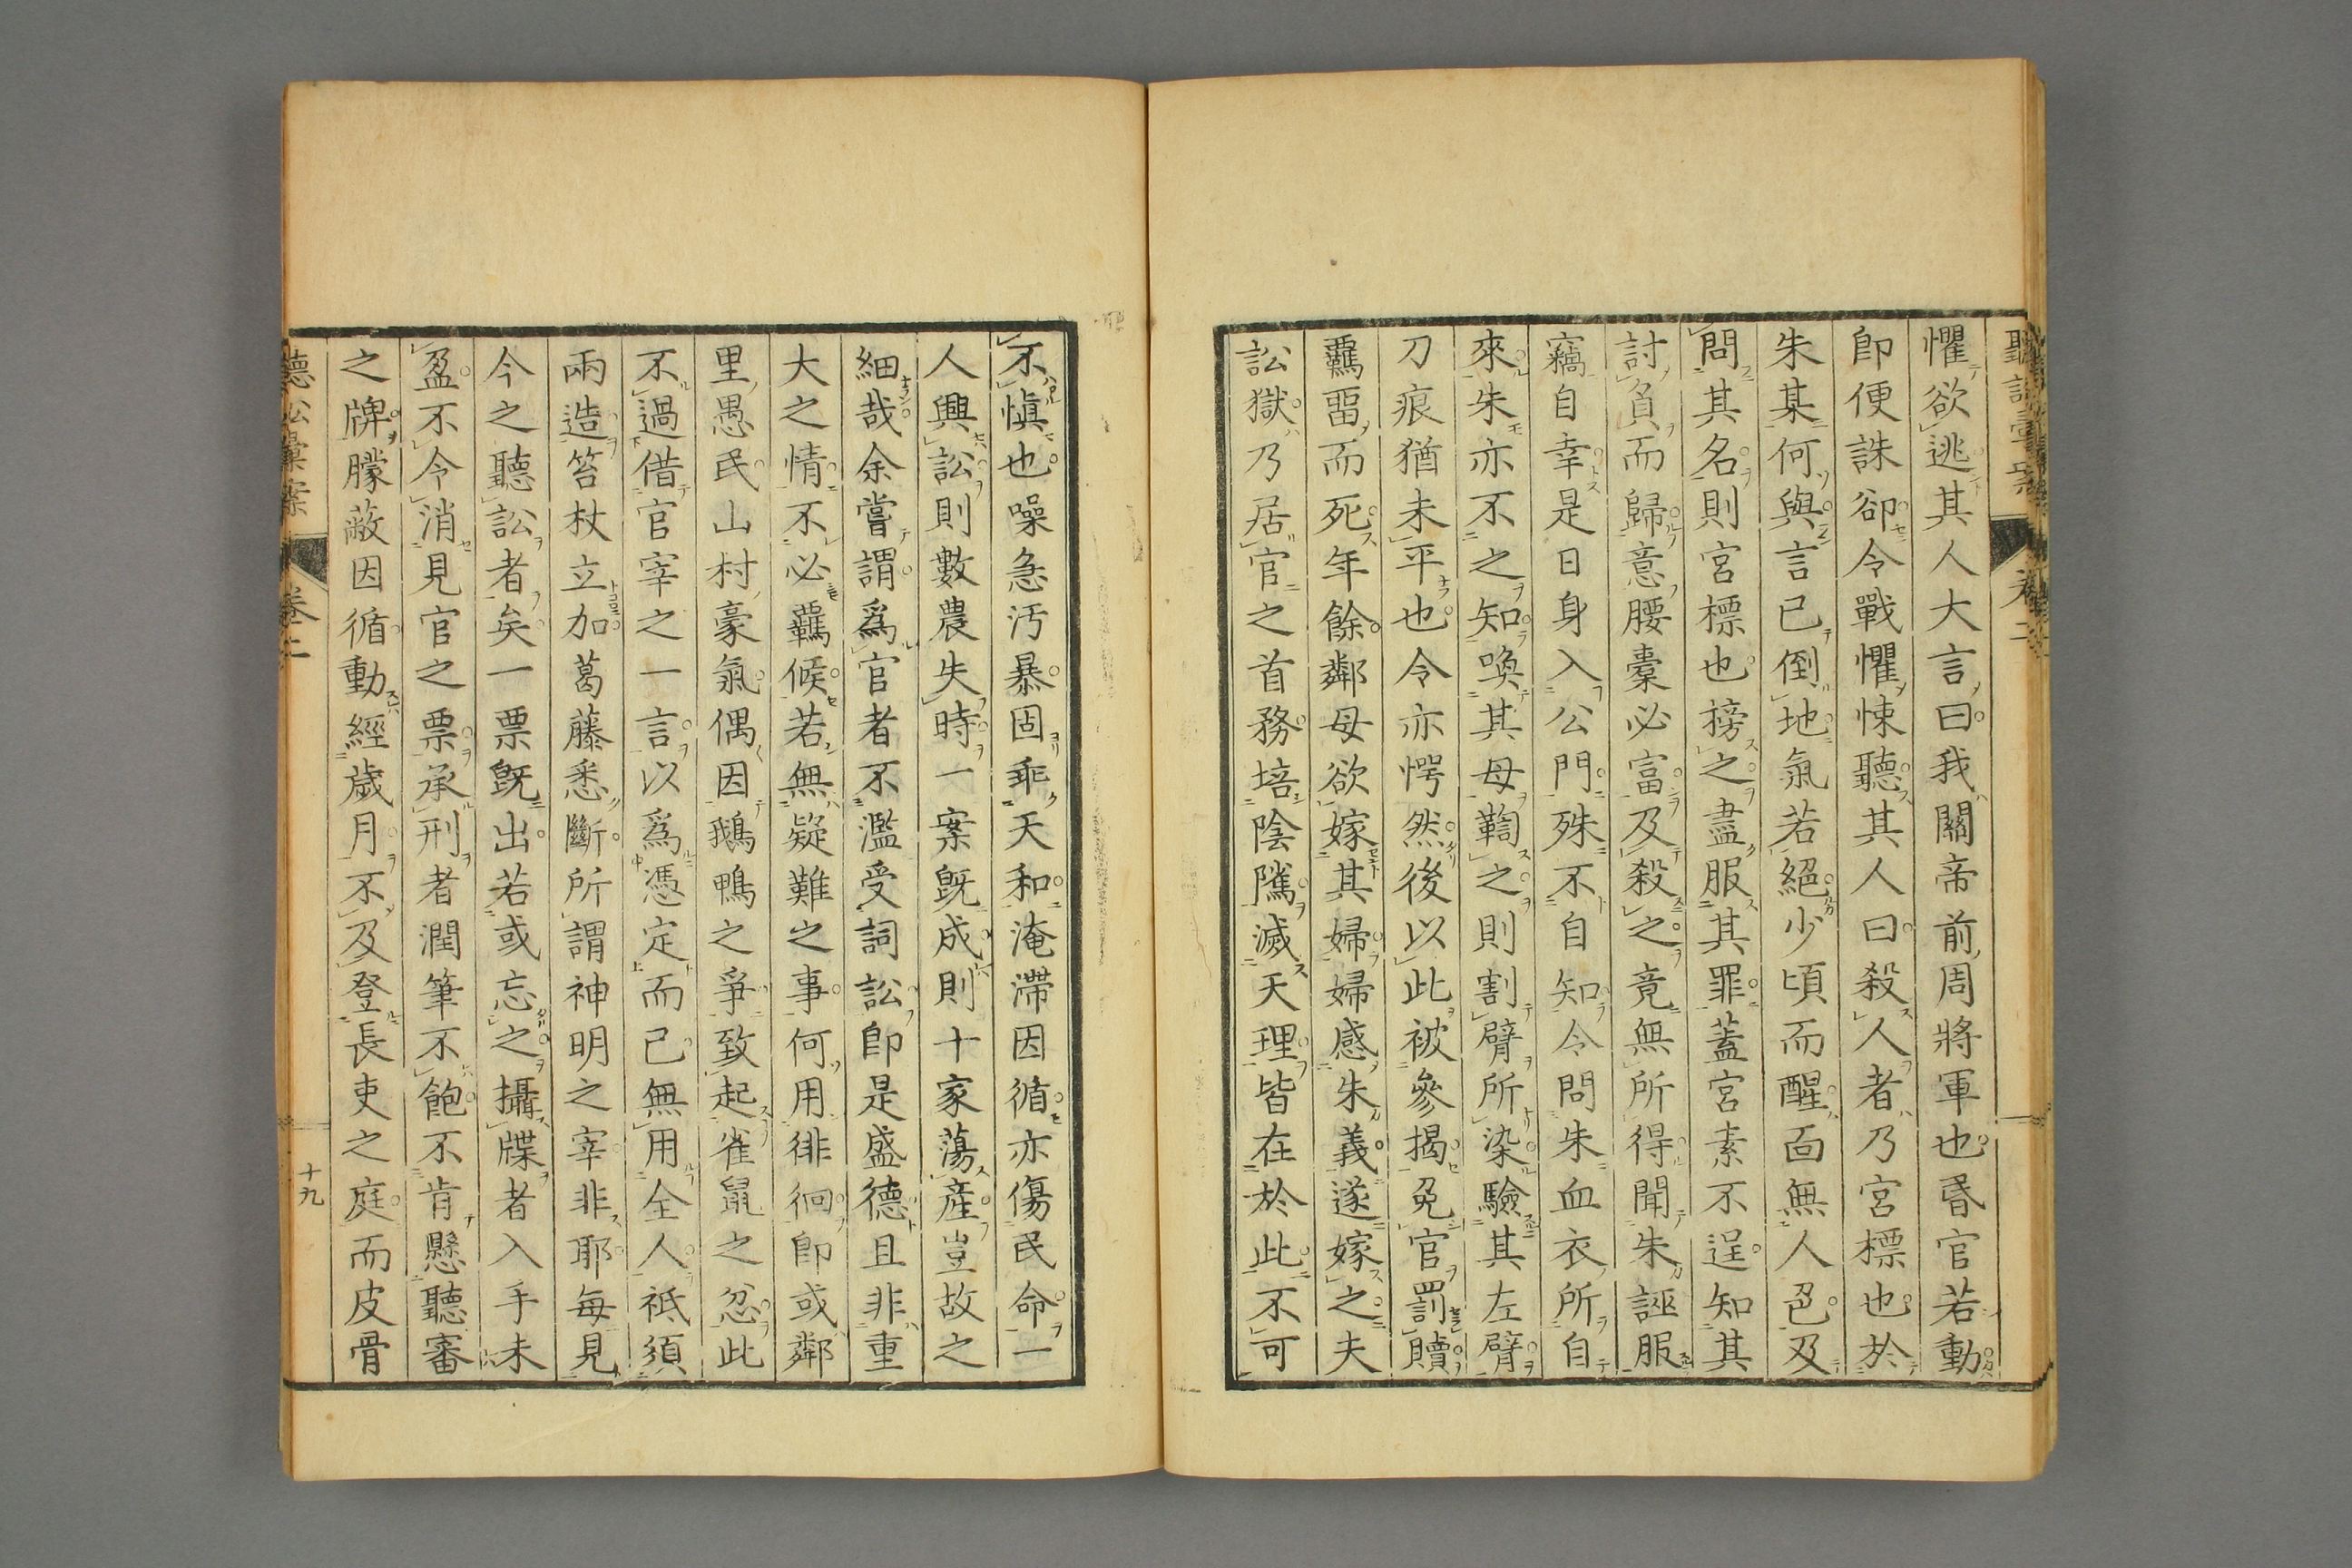 聽訟彙案
卷二
懼欲逃其人大言曰我關帝前周將軍也昏官若動
卽便誅卻令戰懼悚聽其人曰殺人者乃宮標也於
朱某何與言已倒地氣若絕少頃而醒面無人色及
問其名則宮標也搒之盡服其罪蓋宮素不逞知其
討負而歸意腰橐必富及殺之竟無所得聞朱誣服
竊自幸是日身入公門殊不自知令問朱血衣所自
來朱亦不之知喚其母鞫之則割臂所染驗其左臂
刀痕猶未平也令亦愕然後以此被參揭免官罰贖
羈畱而死年餘鄰母欲嫁其婦婦感朱義遂嫁之夫
訟獄乃居官之首務培陰隲滅天理皆在於此不可
不愼也噪急汚暴固乖天和淹滯因循亦傷民命一
人興訟則數農失時一案旣成則十家蕩產豈故之
細哉余嘗謂爲官者不濫受詞訟卽是盛德且非重
大之情不必羈候若無疑難之事何用徘徊卽或鄰
里愚民山村豪氣偶因鵝鴨之爭致起雀鼠之忿此
不過借官宰之一言以爲憑定而已無用全人祇須
兩造笞杖立加葛藤悉斷所謂神明之宰非耶每見
今之聽訟者矣一票旣出若或忘之攝牒者入手未
盈不令消見官之票承刑者潤筆不飽不肯懸聽審
之牌朦蔽因循動經歲月不及登長吏之庭而皮骨
聽訟彙案
卷二
十九